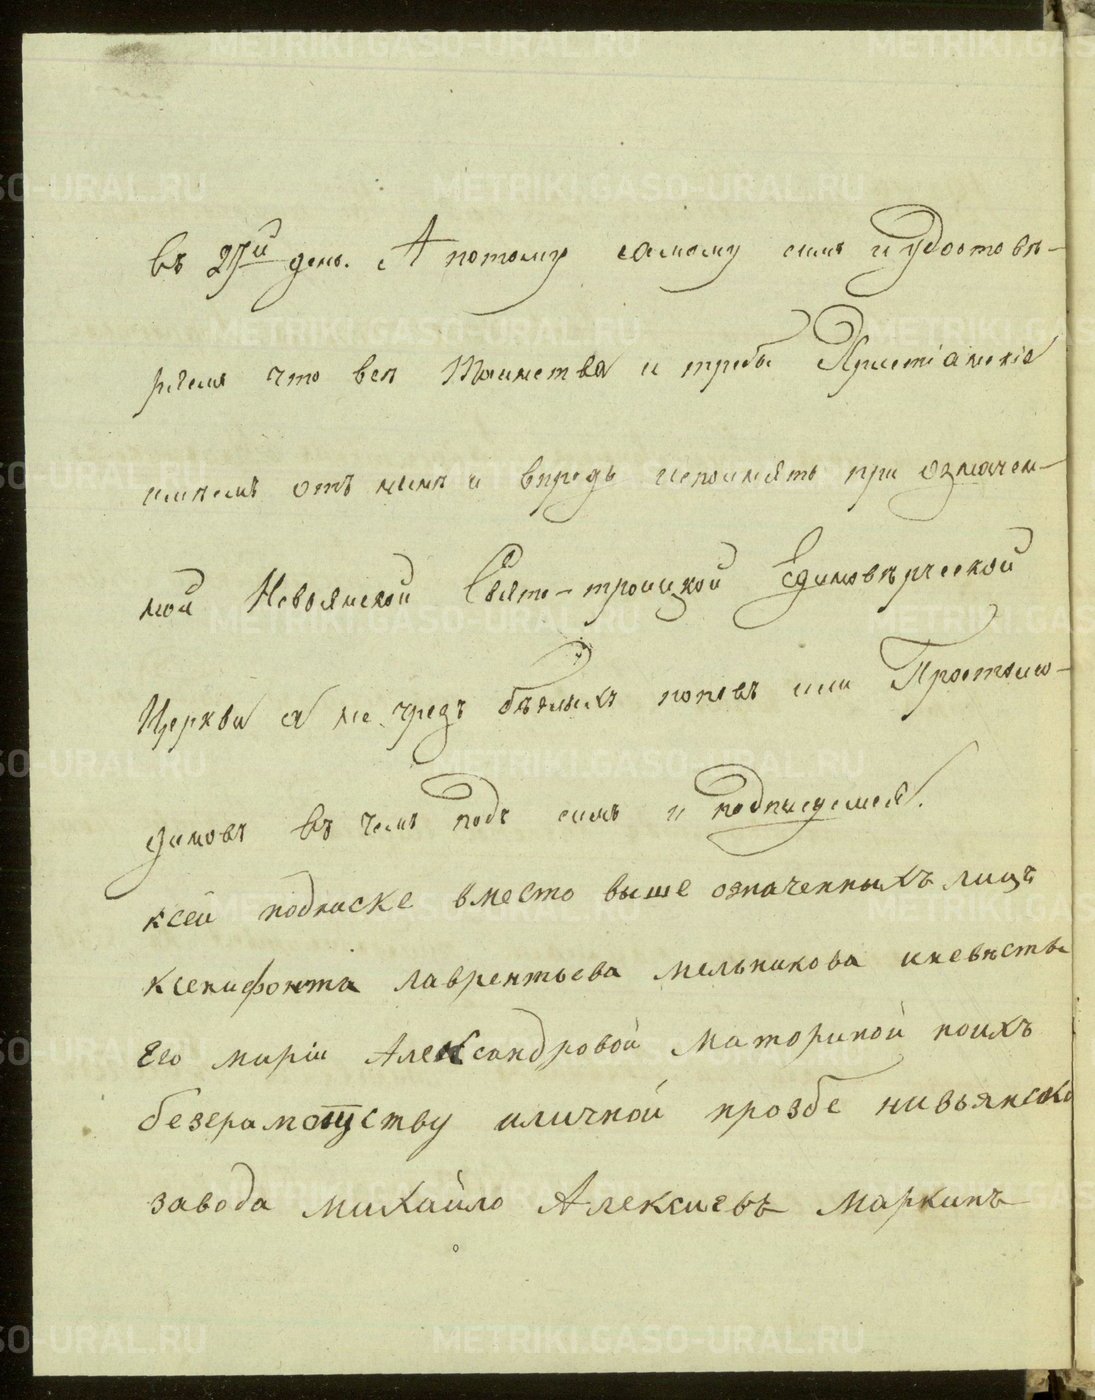 въ 27й день. А потому самому симъ и удостовѣ-
ряемъ что всѣ Таинства и требы Христіанскія
имѣемъ отъ нынѣ и впредь исполнять при означен-
ной Невьянской Свято-троицкой Единовѣрческой
Церкви а не чрезъ бѣглыхъ поповъ или Простолю-
диновъ въ чемъ подъ симъ и подписуемся.
ксей подписке вместо выше означенныхъ лицъ
ксенифонта лаврентьева мельникова иневѣсты
Его марiи Александровой маториной поихъ
безграмотству иличной прозбе нивьянско
завода михайло Алексиевъ маркинъ
METRIKI.GASO-URAL.RU